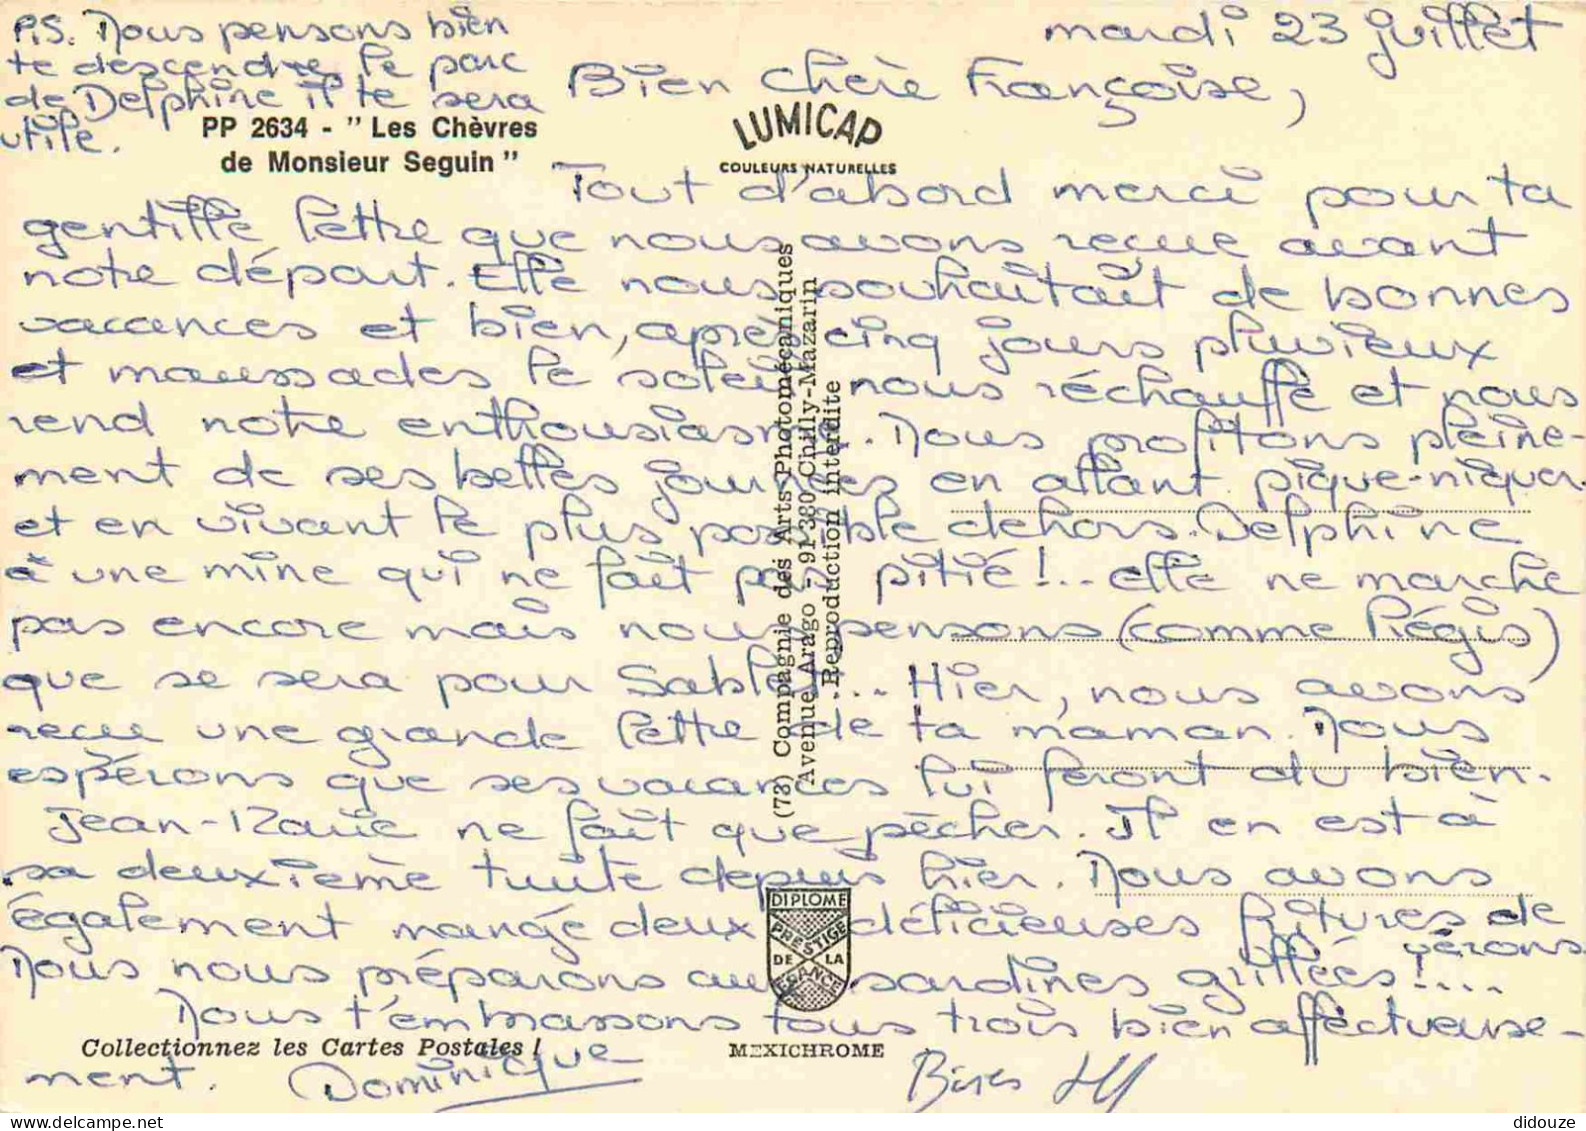 mardi 23 juillet
P.S. Nous pensons bien
te descendre le parc
de Delphine il te sera
utile.
Bien chère Françoise,
PP 2634 - " Les Chèvres
de Monsieur Seguin "
LUMICAP
COULEURS NATURELLES
Tout d'abord merci pour ta
gentille lettre que nous avons reçue avant
notre départ. Elle nous souhaitait de bonnes
vacances et bien, après cinq jours pluvieux
et maussades le soleil nous réchauffe et nous
rend notre enthousiasme. Nous profitons pleine-
ment de ses belles journées en allant pique-niquer
et en vivant le plus possible dehors. Delphine
a une mine qui ne fait pas pitié !... elle ne marche
pas encore mais nous pensons (comme Piégis)
que se sera pour Sablet... Hier, nous avons
reçue une grande lettre de ta maman. Nous
espérons que ses vacances lui feront du bien.
Jean- ne fait que pêcher. Il en est à
sa deuxième truite depuis hier. Nous avons
également mangé deux délicieuses fritures de
vérons.
Nous nous préparons aux sardines grillées !....
Nous t'embrassons tous trois bien affectueuse-
ment. Dominique
Bises
(73) Compagnie des Arts Photomécaniques
Avenue Arago - 91-380 Chilly-Mazarin
Reproduction interdite
DIPLOME
PRESTIGE
DE LA
FRANCE
Collectionnez les Cartes Postales !
MEXICHROME
didouze